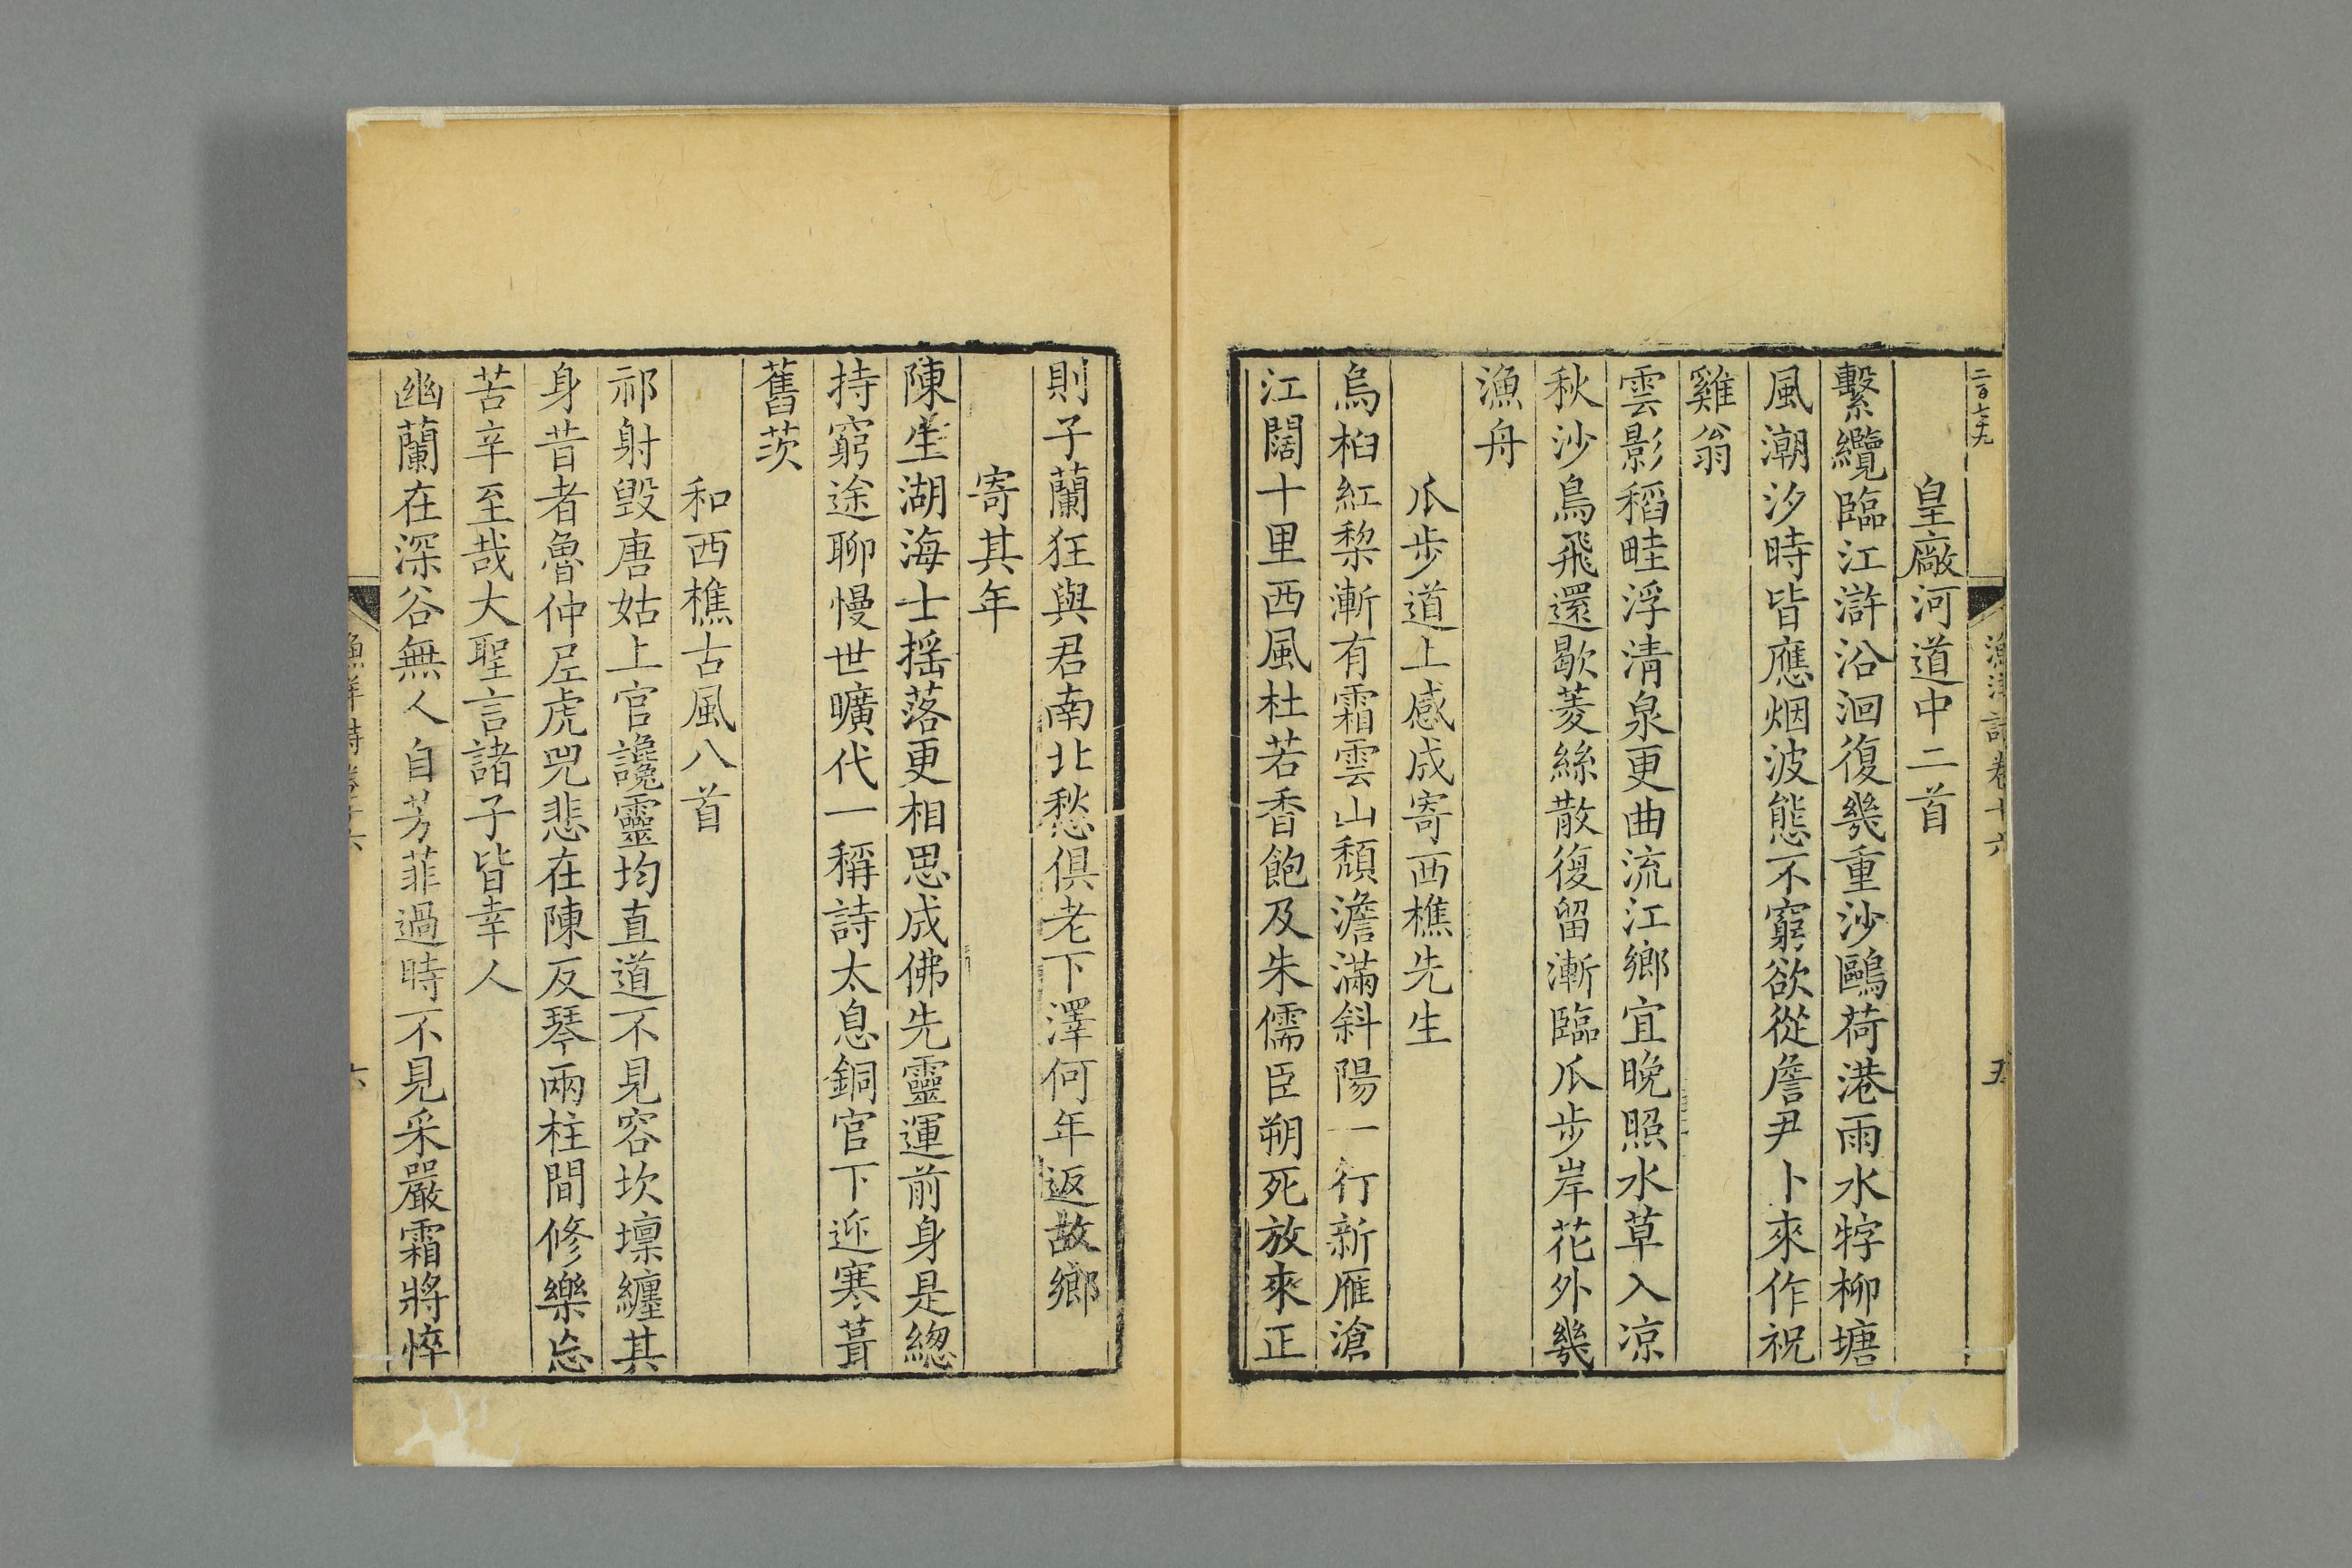 二百七十九
漁洋詩卷十六
五
皇廠河道中二首
繫纜臨江滸沿洄復幾重沙鷗荷港雨水牸柳塘
風潮汐時皆應烟波態不窮欲從詹尹卜來作祝
雞翁
雲影稻畦浮清泉更曲流江鄉宜晚照水草入涼
秋沙鳥飛還歇菱絲散復留漸臨瓜步岸花外幾
漁舟
瓜步道上感成寄西樵先生
烏桕紅黎漸有霜雲山頹澹滿斜陽一行新雁滄
江闊十里西風杜若香飽及朱儒臣朔死放來正
則子蘭狂與君南北愁俱老下澤何年返故鄉
寄其年
陳生湖海士揺落更相思成佛先靈運前身是緫
持窮途聊慢世曠代一稱詩太息銅官下近寒葺
舊茨
和西樵古風八首
祁射毀唐姑上官讒靈均直道不見容坎壈纏其
身昔者魯仲尼虎兕悲在陳反琴兩柱間修樂忘
苦辛至哉大聖言諸子皆幸人
幽蘭在深谷無人自芳菲過時不見采嚴霜將悴
漁洋詩卷十六
六